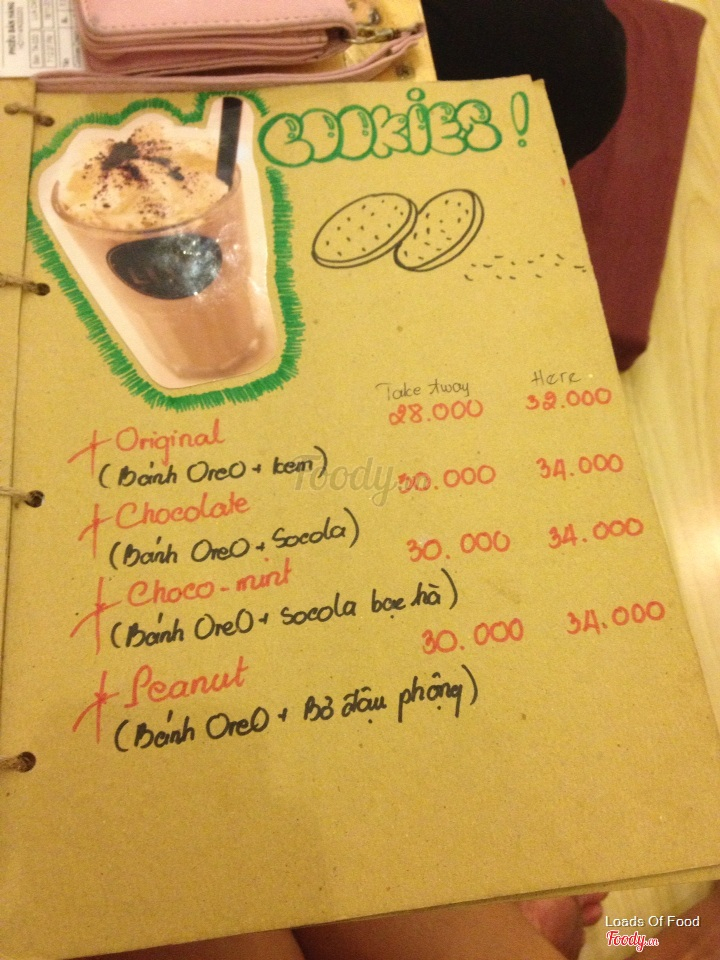 PHIẾU BÁN HÀNG
COOKIES!
Take Away Here
+ Original 28.000 32.000
(Bánh OreO + kem)
Foody.vn
+ Chocolate 30.000 34.000
(Bánh OreO + Socola)
+ Choco-mint 30.000 34.000
(Bánh OreO + socola bạc hà)
+ Peanut 30.000 34.000
(Bánh OreO + Bơ đậu phộng)
Loads Of Food
Foody.vn